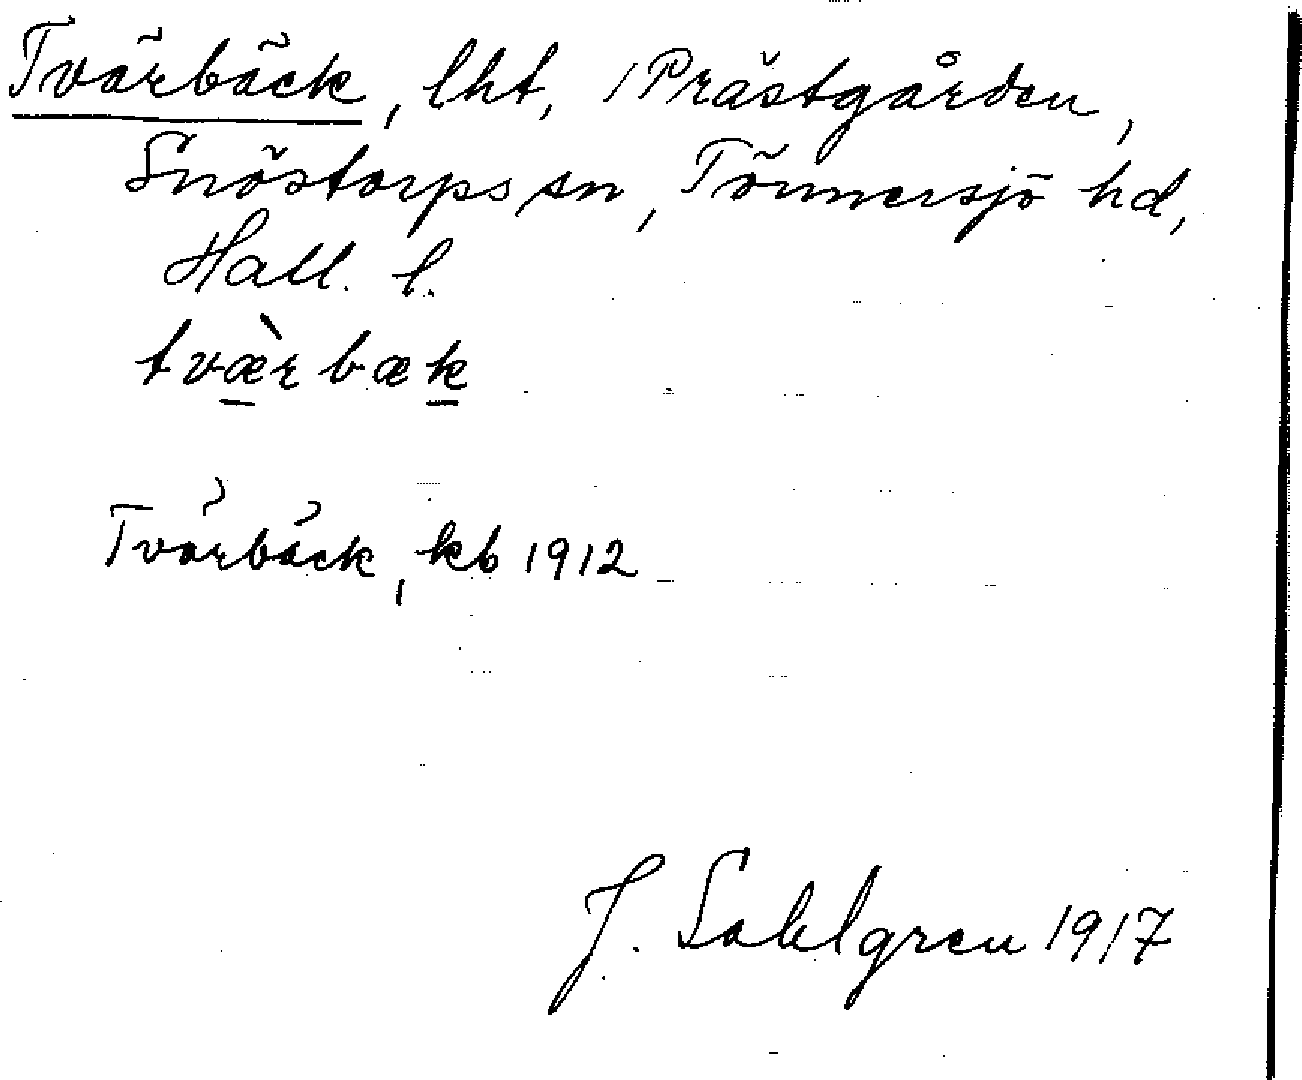 Tvärbäck, lht, 1 Prästgården,
Snöstorps sn, Tönnersjö hd,
Hall. l.
tvæ̀rbæk
Tvärbäck, kb 1912
J. Sahlgren 1917